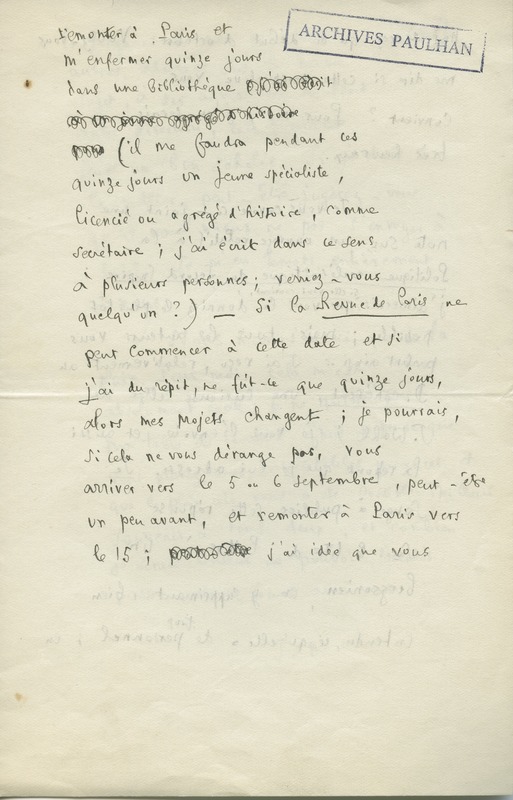 ARCHIVES PAULHAN
remonter à Paris et
m'enfermer quinze jours
dans une bibliothèque
(il me faudra pendant ces
quinze jours un jeune spécialiste,
licencié ou agrégé d'histoire, comme
secrétaire ; j'ai écrit dans ce sens
à plusieurs personnes ; verriez-vous
quelqu'un ?) — Si la Revue de Paris ne
peut commencer à cette date et si
j'ai du répit, ne fût-ce que quinze jours,
alors mes projets changent ; je pourrais,
si cela ne vous dérange pas, vous
arriver vers le 5 ou 6 septembre, peut-être
un peu avant, et remonter à Paris vers
le 15 ; j'ai idée que vous